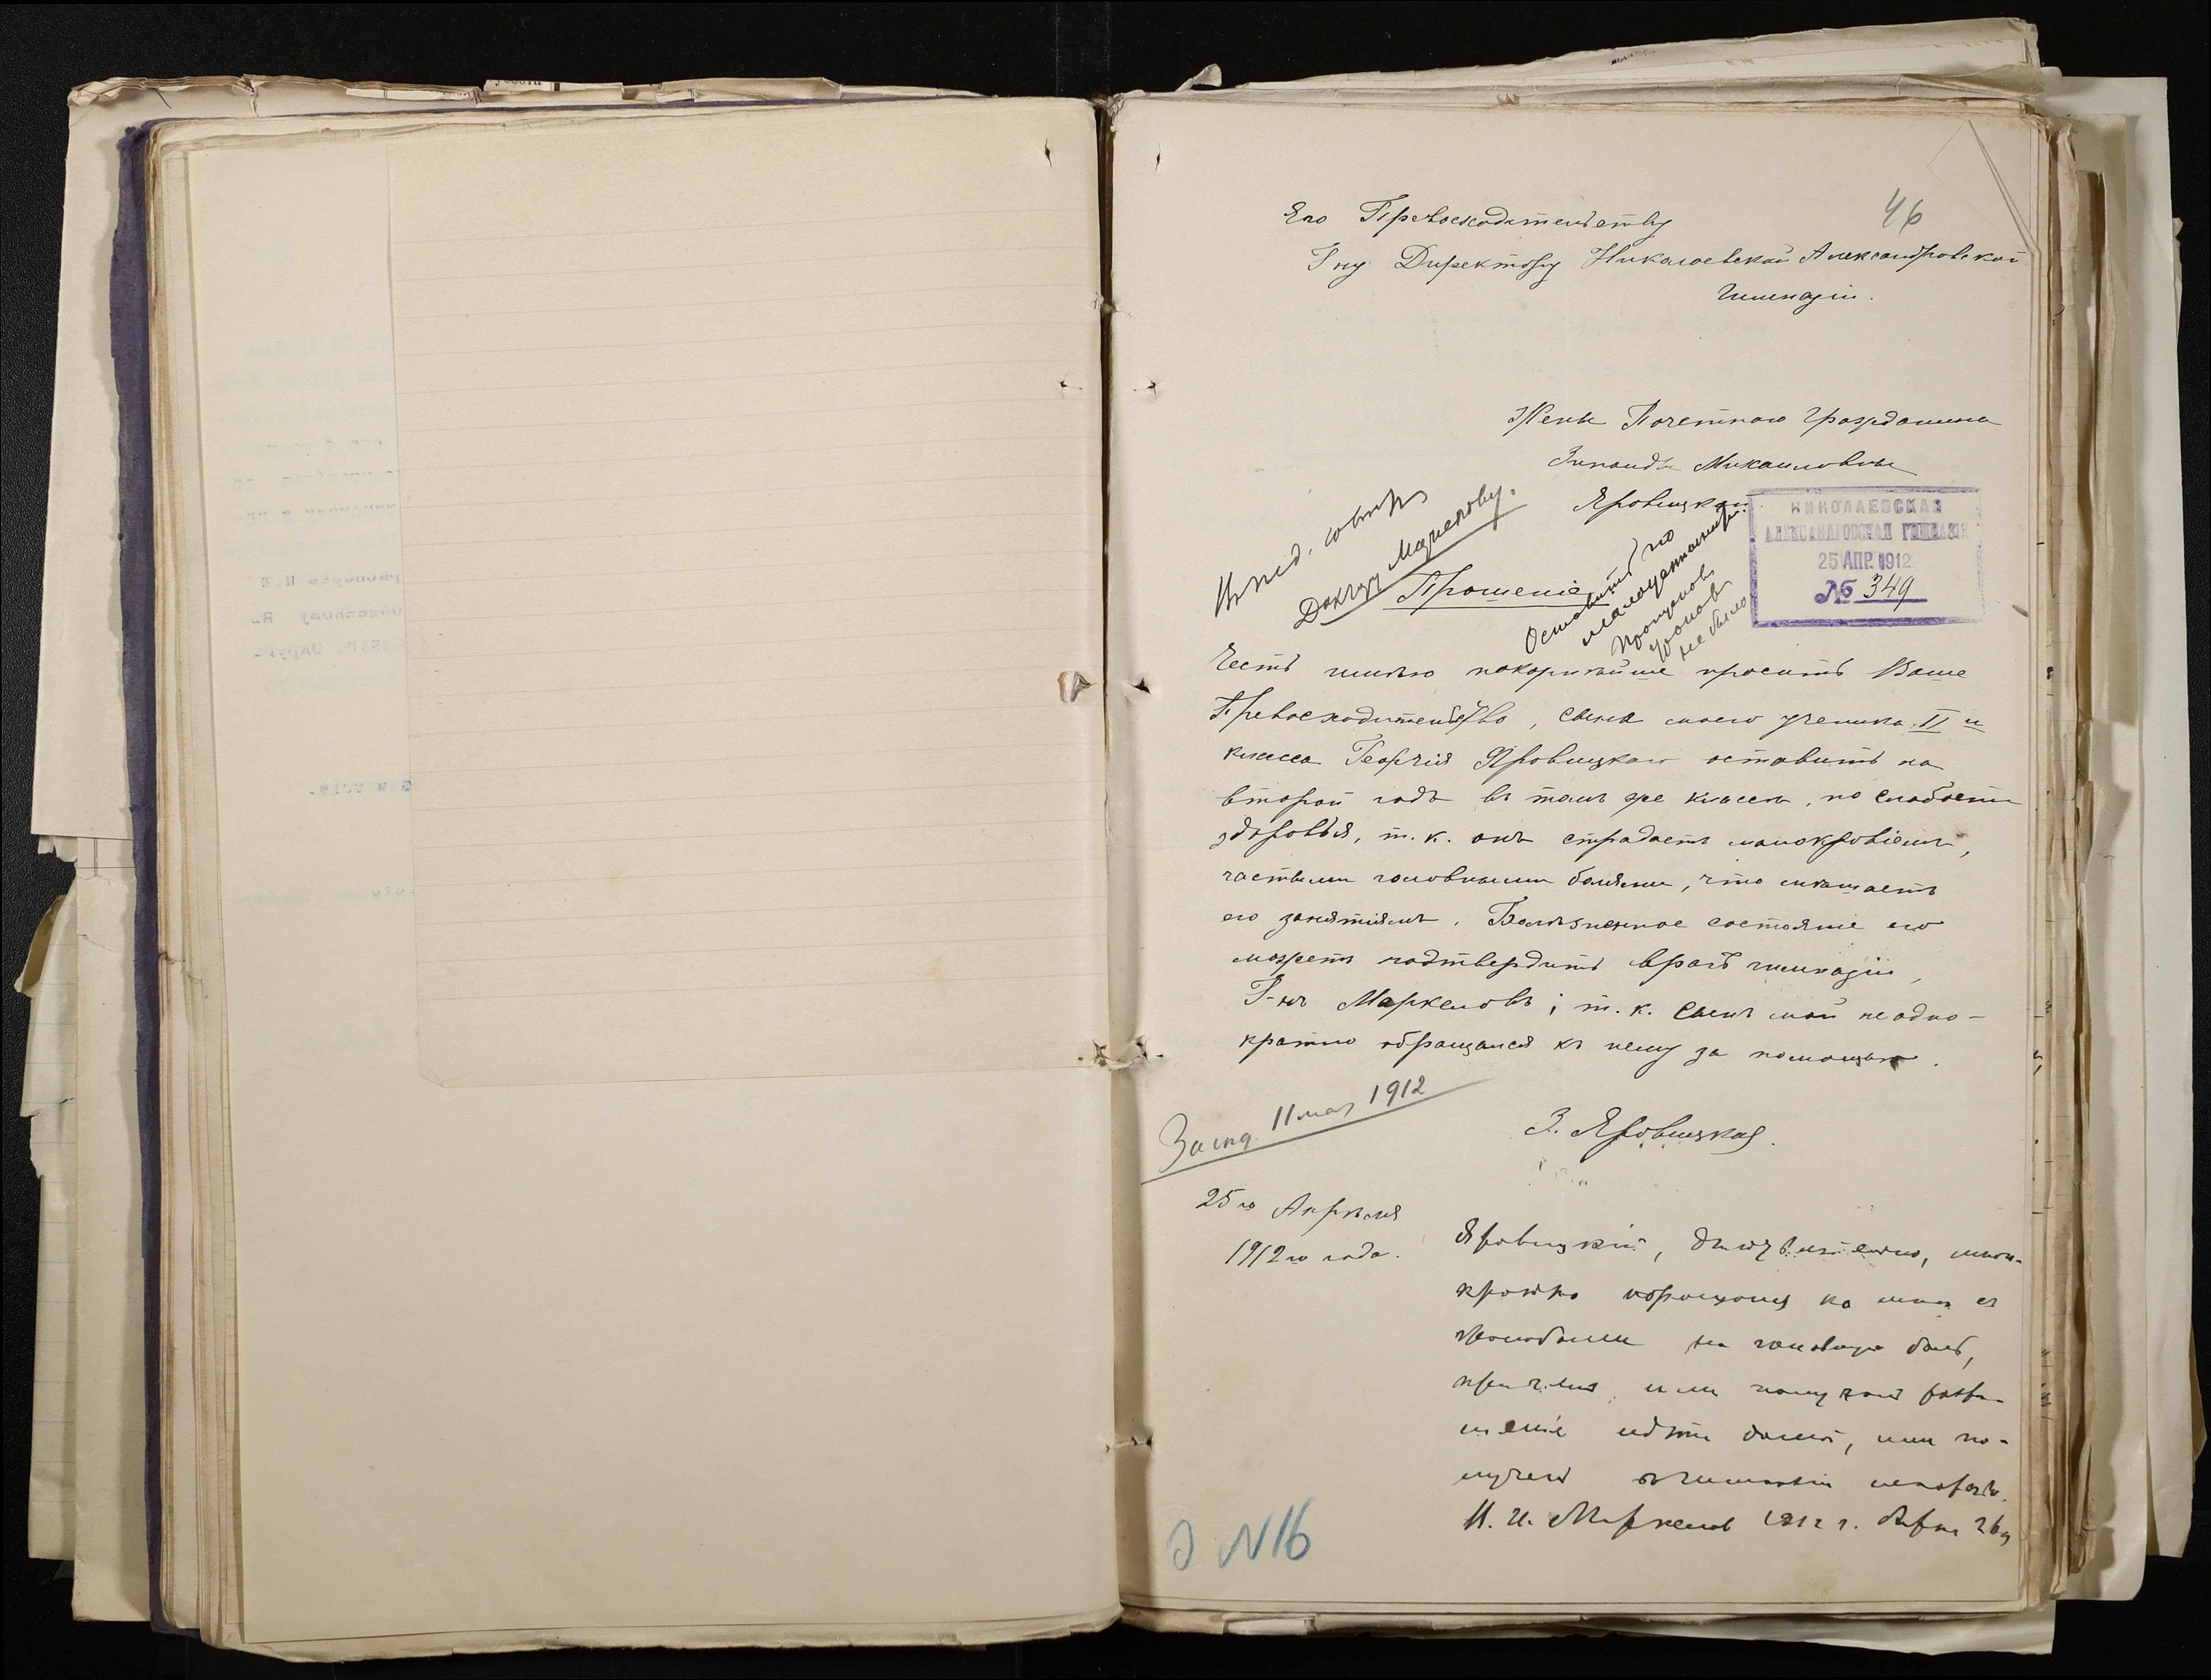 46
Его Превосходительству
Г-ну Директору Николаевской Александровской
Гимназіи.
Жены Почетнаго Гражданина
Зинаиды Михаиловны
Яровицкой
НИКОЛАЕВСКАЯ
АЛЕКСАНДРОВСКАЯ ГИМНАЗІЯ
25 АПР. 1912
№ 349
Доктору Маркелову.
Оставить по
малоуспѣшности.
Прошеніе
Честь имѣю покорнѣйше просить Ваше
Превосходительство, сына моего ученика II го
класса Георгія Яровицкаго оставить на
второй годъ въ томъ же классѣ, по слабости
здоровья, т. к. онъ страдаетъ малокровіемъ,
частыми головными болями, что мѣшаетъ
его занятіямъ. Болѣзненное состояніе его
можетъ подтвердить врачъ гимназіи,
Г-нъ Маркеловъ; т. к. сынъ мой неодно-
кратно обращался къ нему за помощью.
Засѣд. 11 мая 1912
З. Яровицкая.
25 го Апрѣля
1912 го года.
Яровицкій, дѣйствительно, много-
кратно обращался ко мнѣ съ
жалобами на головную боль,
причемъ или получалъ разрѣ-
шеніе идти домой, или по-
лучалъ въ гимназіи лекарство.
Н. И. Маркеловъ 1912 г. Апр. 26
Э N16